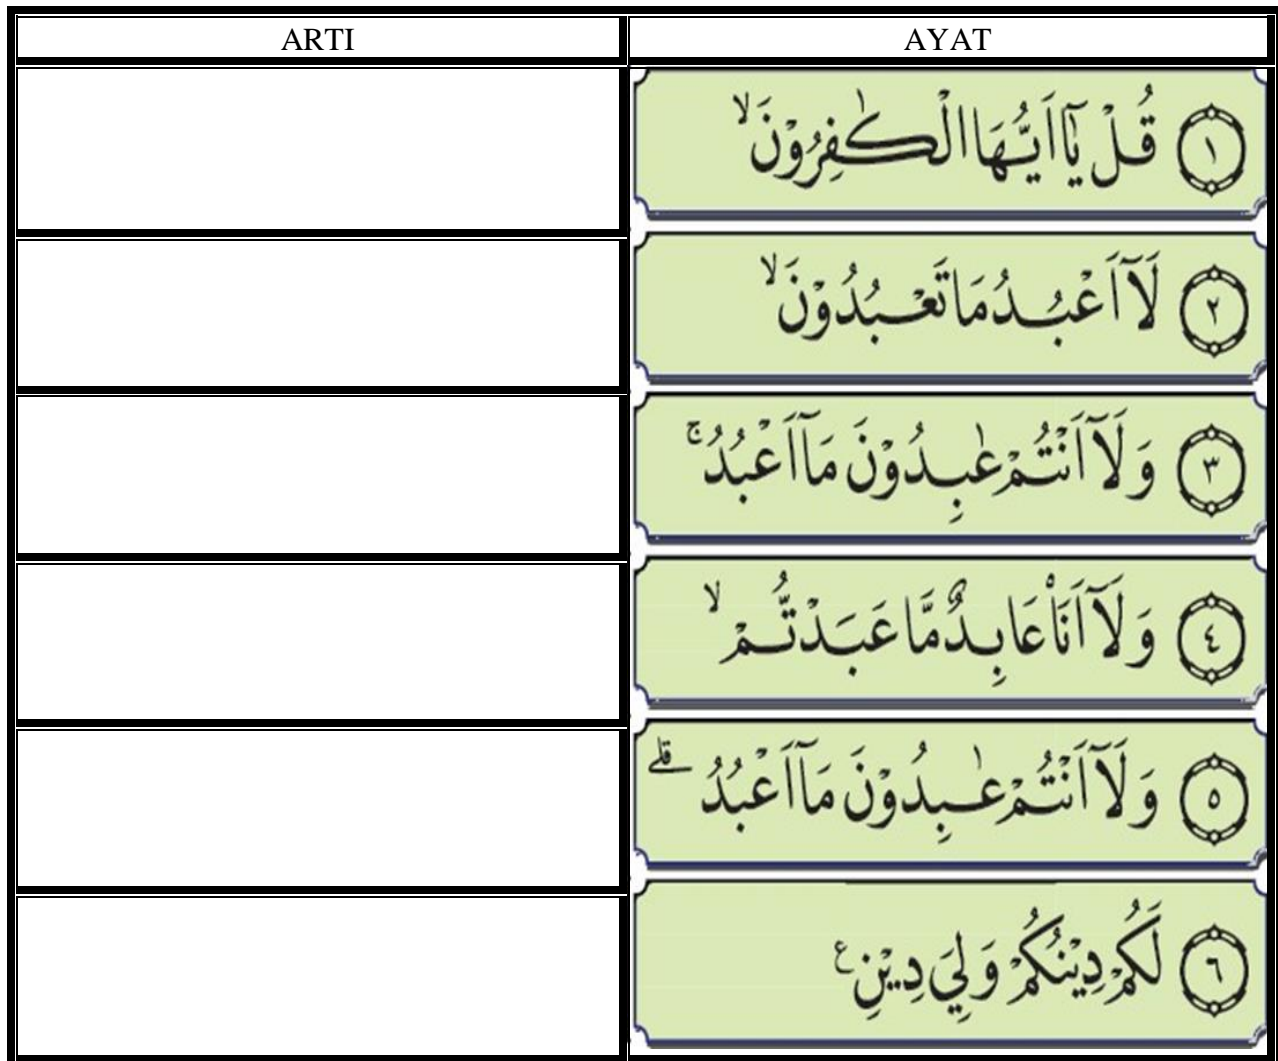 ARTI AYAT
١ قُلْ يٰٓاَيُّهَا الْكٰفِرُوْنَۙ
٢ لَآ اَعْبُدُ مَا تَعْبُدُوْنَۙ
٣ وَلَآ اَنْتُمْ عٰبِدُوْنَ مَآ اَعْبُدُۚ
٤ وَلَآ اَنَا۠ عَابِدٌ مَّا عَبَدْتُّمْۙ
٥ وَلَآ اَنْتُمْ عٰبِدُوْنَ مَآ اَعْبُدُۗ
٦ لَكُمْ دِيْنُكُمْ وَلِيَ دِيْنِࣖ